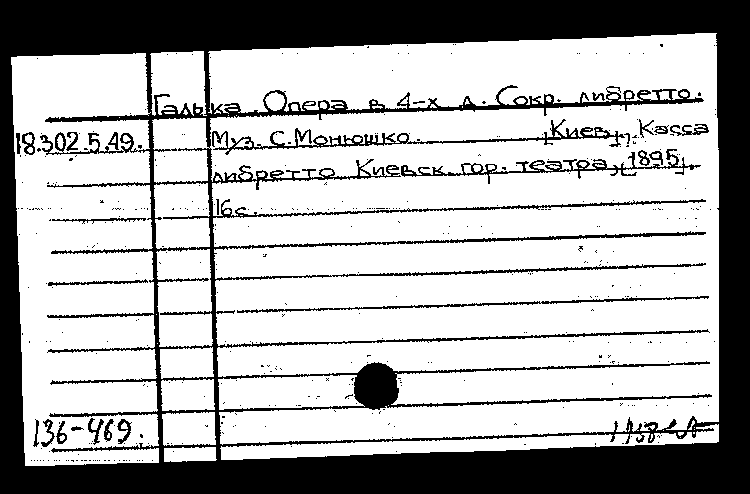 Галька. Опера в 4-х д. Сокр. либретто.
18.302.5.49. Муз. С. Монюшко. [Киев], Касса
либретто Киевск. гор. театра, [1895].
16 с.
136-469.